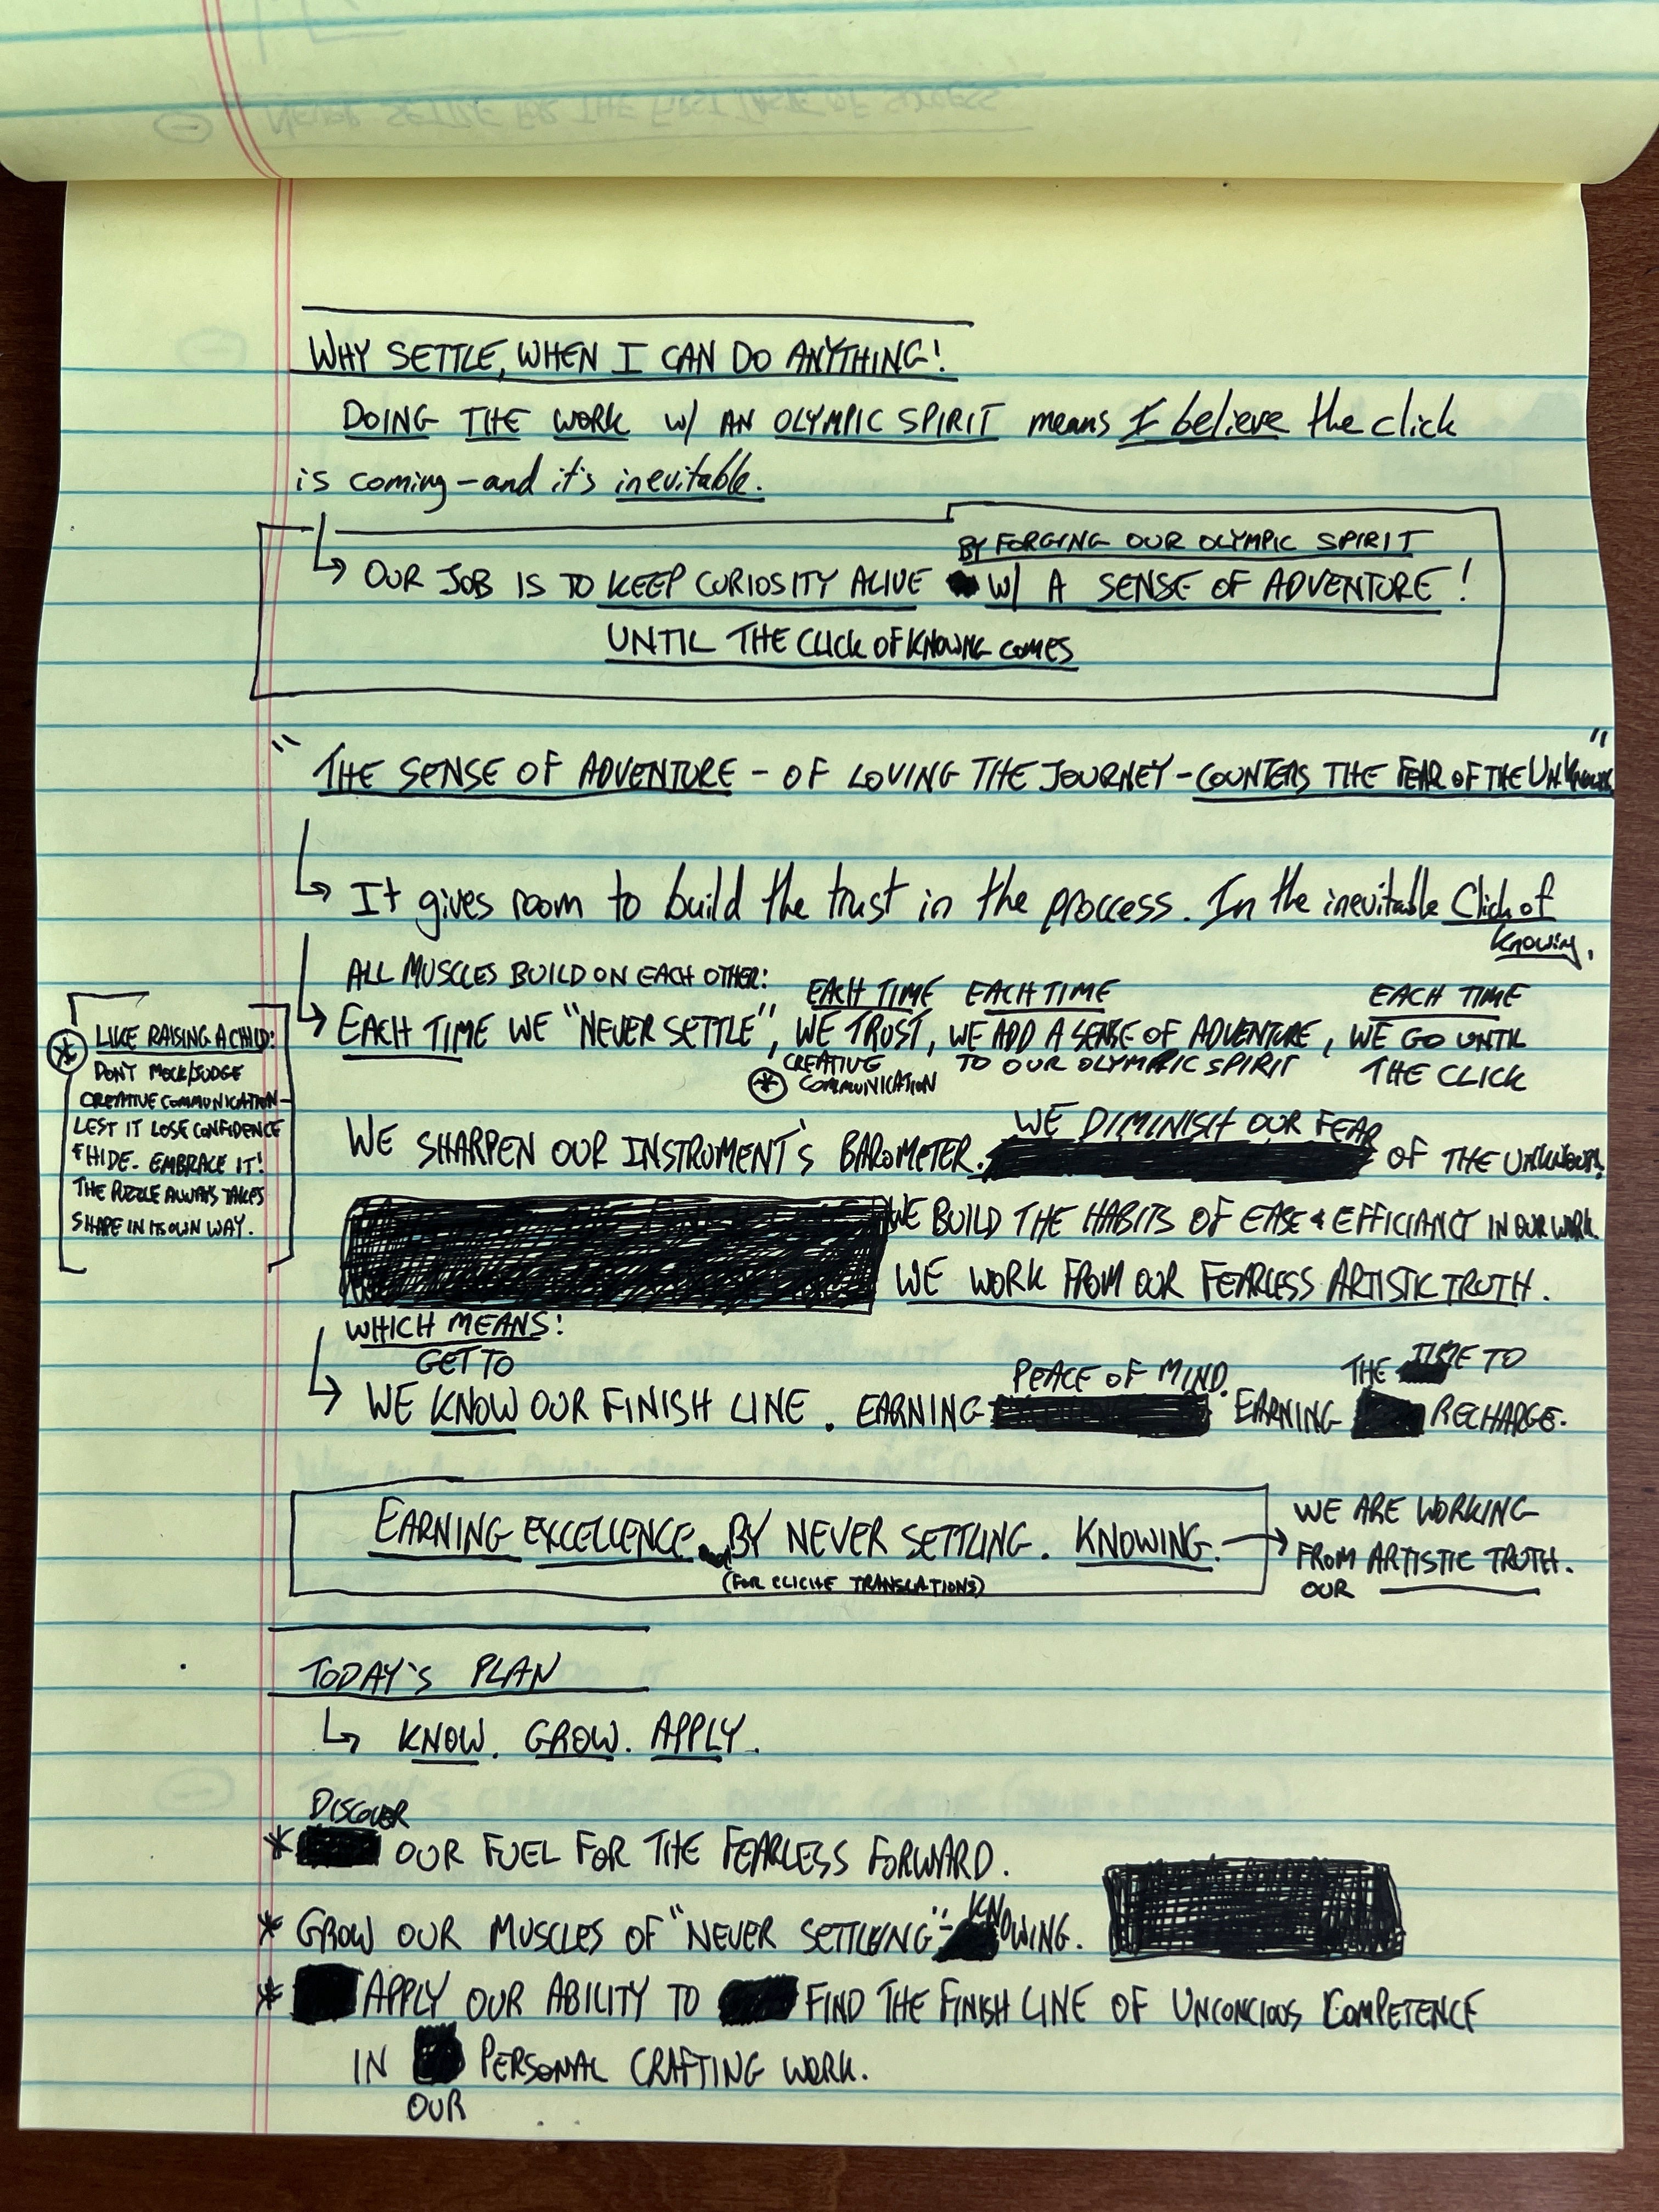 WHY SETTLE, WHEN I CAN DO ANYTHING!
DOING THE WORK W/ AN OLYMPIC SPIRIT means I believe the click
is coming – and it's inevitable.
BY FORGING OUR OLYMPIC SPIRIT
OUR JOB IS TO KEEP CURIOSITY ALIVE W/ A SENSE OF ADVENTURE!
UNTIL THE CLICK OF KNOWING COMES
"THE SENSE OF ADVENTURE – OF LOVING THE JOURNEY – COUNTERS THE FEAR OF THE UNKNOWN"
It gives room to build the trust in the proccess. In the inevitable Click of
Knowing.
ALL MUSCLES BUILD ON EACH OTHER:
EACH TIME EACH TIME EACH TIME
EACH TIME WE "NEVER SETTLE", WE TRUST, WE ADD A SENSE OF ADVENTURE, WE GO UNTIL
CREATIVE COMMUNICATION TO OUR OLYMPIC SPIRIT THE CLICK
LIKE RAISING A CHILD:
DON'T MOCK/JUDGE
CREATIVE COMMUNICATION –
LEST IT LOSE CONFIDENCE
& HIDE. EMBRACE IT!
THE PUZZLE ALWAYS TAKES
SHAPE IN ITS OWN WAY.
WE DIMINISH OUR FEAR
WE SHARPEN OUR INSTRUMENT'S BAROMETER. OF THE UNKNOWN.
WE BUILD THE HABITS OF EASE & EFFICIANCY IN OUR WORK.
WE WORK FROM OUR FEARLESS ARTISTIC TRUTH.
WHICH MEANS:
GET TO PEACE OF MIND. THE TIME TO
WE KNOW OUR FINISH LINE. EARNING EARNING RECHARGE.
EARNING EXCELLENCE BY NEVER SETTLING. KNOWING.
(FOR CLICHE TRANSLATIONS)
WE ARE WORKING
FROM ARTISTIC TRUTH.
OUR
TODAY'S PLAN
KNOW. GROW. APPLY.
DISCOVER
* OUR FUEL FOR THE FEARLESS FORWARD.
* GROW OUR MUSCLES OF "NEVER SETTLING" – KNOWING.
* APPLY OUR ABILITY TO FIND THE FINISH LINE OF UNCONCIOUS COMPETENCE
IN PERSONAL CRAFTING WORK.
OUR